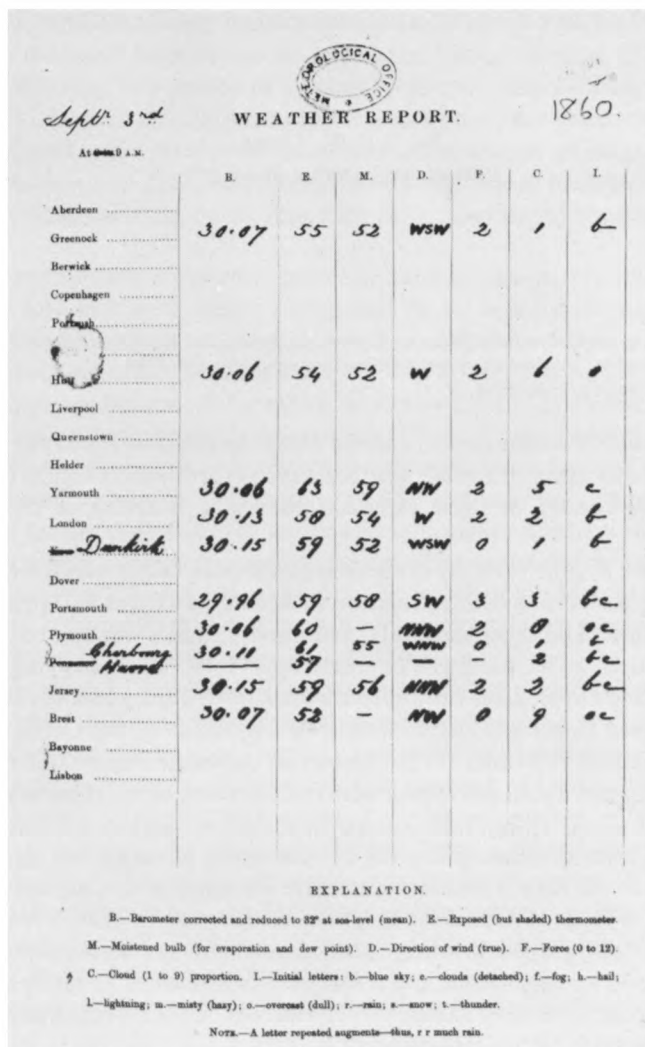 METEOROLOGICAL OFFICE
Septr 3rd WEATHER REPORT. 1860.
At 9 A.M.
B. E. M. D. F. C. I.
Aberdeen
Greenock 30.07 55 52 WSW 2 1 b
Berwick
Copenhagen
Portrush
Hull 30.06 54 52 W 2 6 o
Liverpool
Queenstown
Helder
Yarmouth 30.06 63 59 NW 2 5 c
London 30.13 58 54 W 2 2 b
Dunkirk 30.15 59 52 WSW 0 1 b
Dover
Portsmouth 29.96 59 58 SW 3 3 bc
Plymouth 30.06 60 — NNW 2 8 oc
Cherbourg 30.11 61 55 WNW 0 1 b
Havre — 57 — — — 2 bc
Jersey 30.15 59 56 NNW 2 2 bc
Brest 30.07 52 — NW 0 9 oc
Bayonne
Lisbon
EXPLANATION.
B.—Barometer corrected and reduced to 32° at sea-level (mean). E.—Exposed (but shaded) thermometer.
M.—Moistened bulb (for evaporation and dew point). D.—Direction of wind (true). F.—Force (0 to 12).
C.—Cloud (1 to 9) proportion. I.—Initial letters: b.—blue sky; c.—clouds (detached); f.—fog; h.—hail;
l.—lightning; m.—misty (hazy); o.—overcast (dull); r.—rain; s.—snow; t.—thunder.
NOTE.—A letter repeated augments—thus, r r much rain.